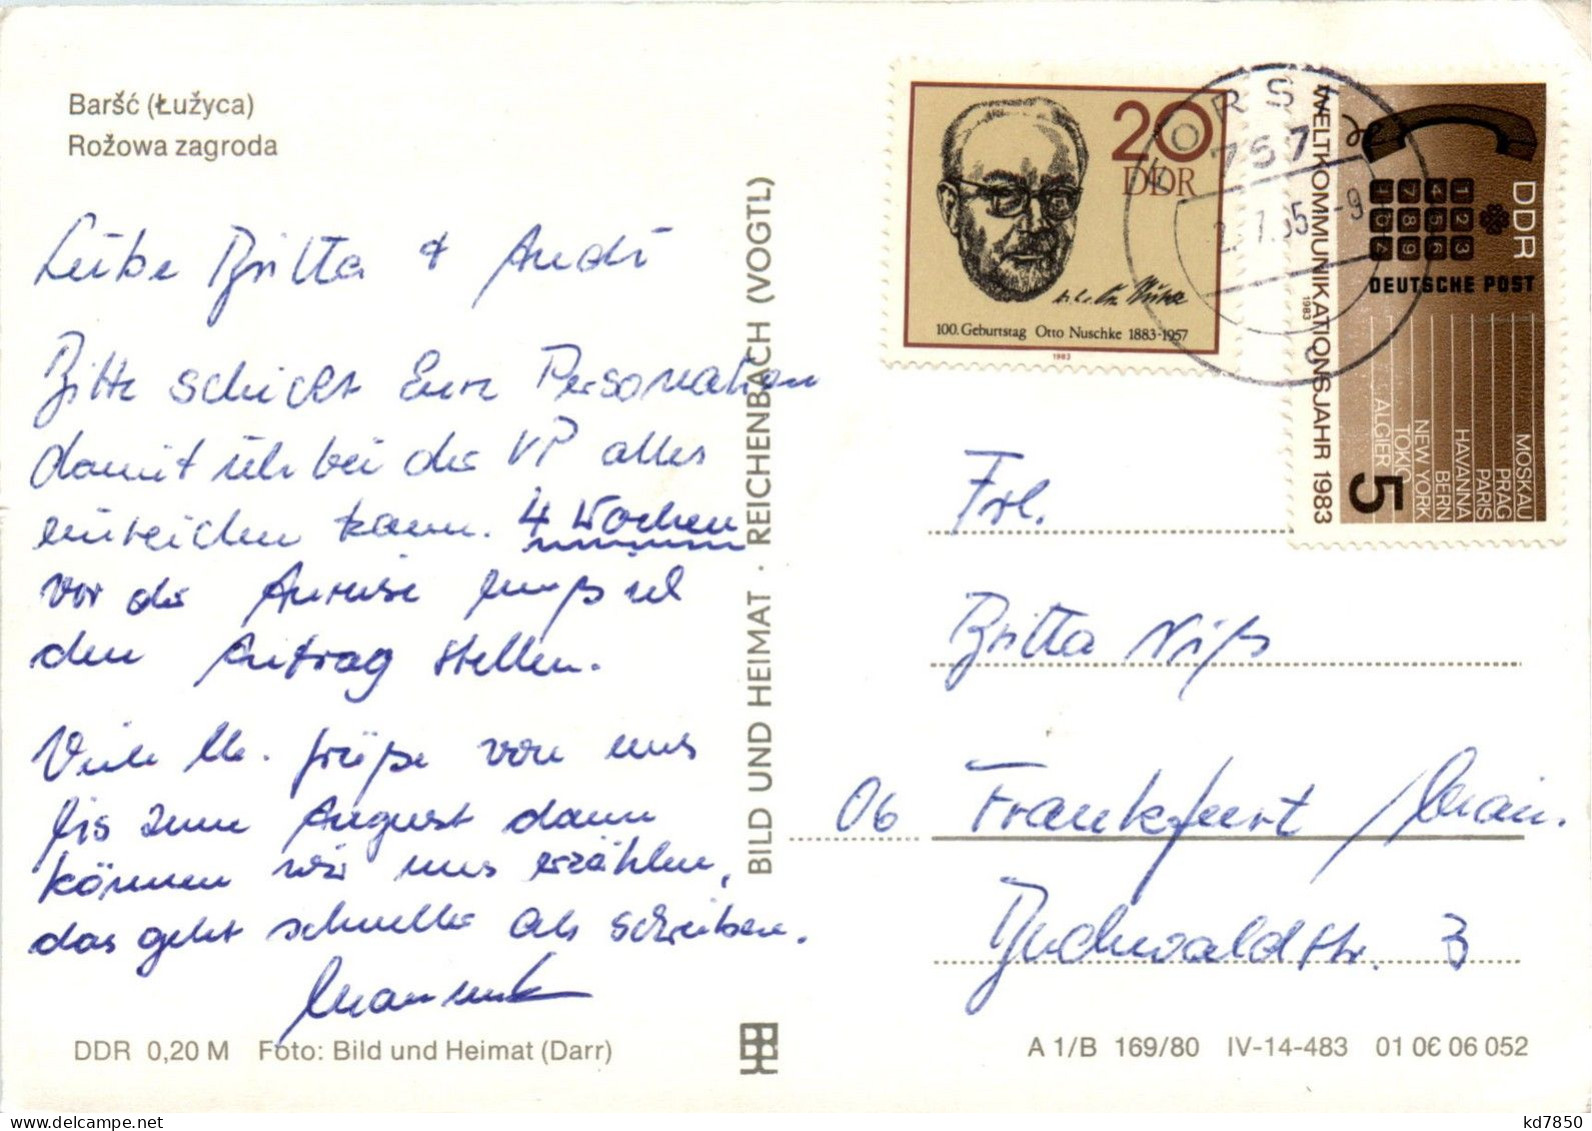 Baršć (Łužyca)
Rožowa zagroda
Liebe Britta + Andi
Bitte schickt Eure Personation
damit ich bei der VP alles
einreichen kann. 4 Wochen
vor der Anreise muß ich
den Antrag stellen.
Viele lb. Grüße von uns
Bis zum August dann
können wir uns erzählen,
das geht schneller als schreiben.
DDR 0,20 M Foto: Bild und Heimat (Darr)
BILD UND HEIMAT · REICHENBACH (VOGTL)
20
DDR
100. Geburtstag Otto Nuschke 1883-1957
1983
FORST
757
-9
WELTKOMMUNIKATIONSJAHR 1983
1983
DDR
DEUTSCHE POST
MOSKAU
PRAG
PARIS
HAVANNA
BERN
NEW YORK
TOKIO
ALGIER
5
Frl.
Britta Niß
06 Frankfurt / Main.
Buchwaldstr. 3
A 1/B 169/80 IV-14-483 01 06 06 052
kd7850